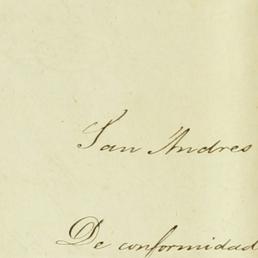 San Andres
De conformidad